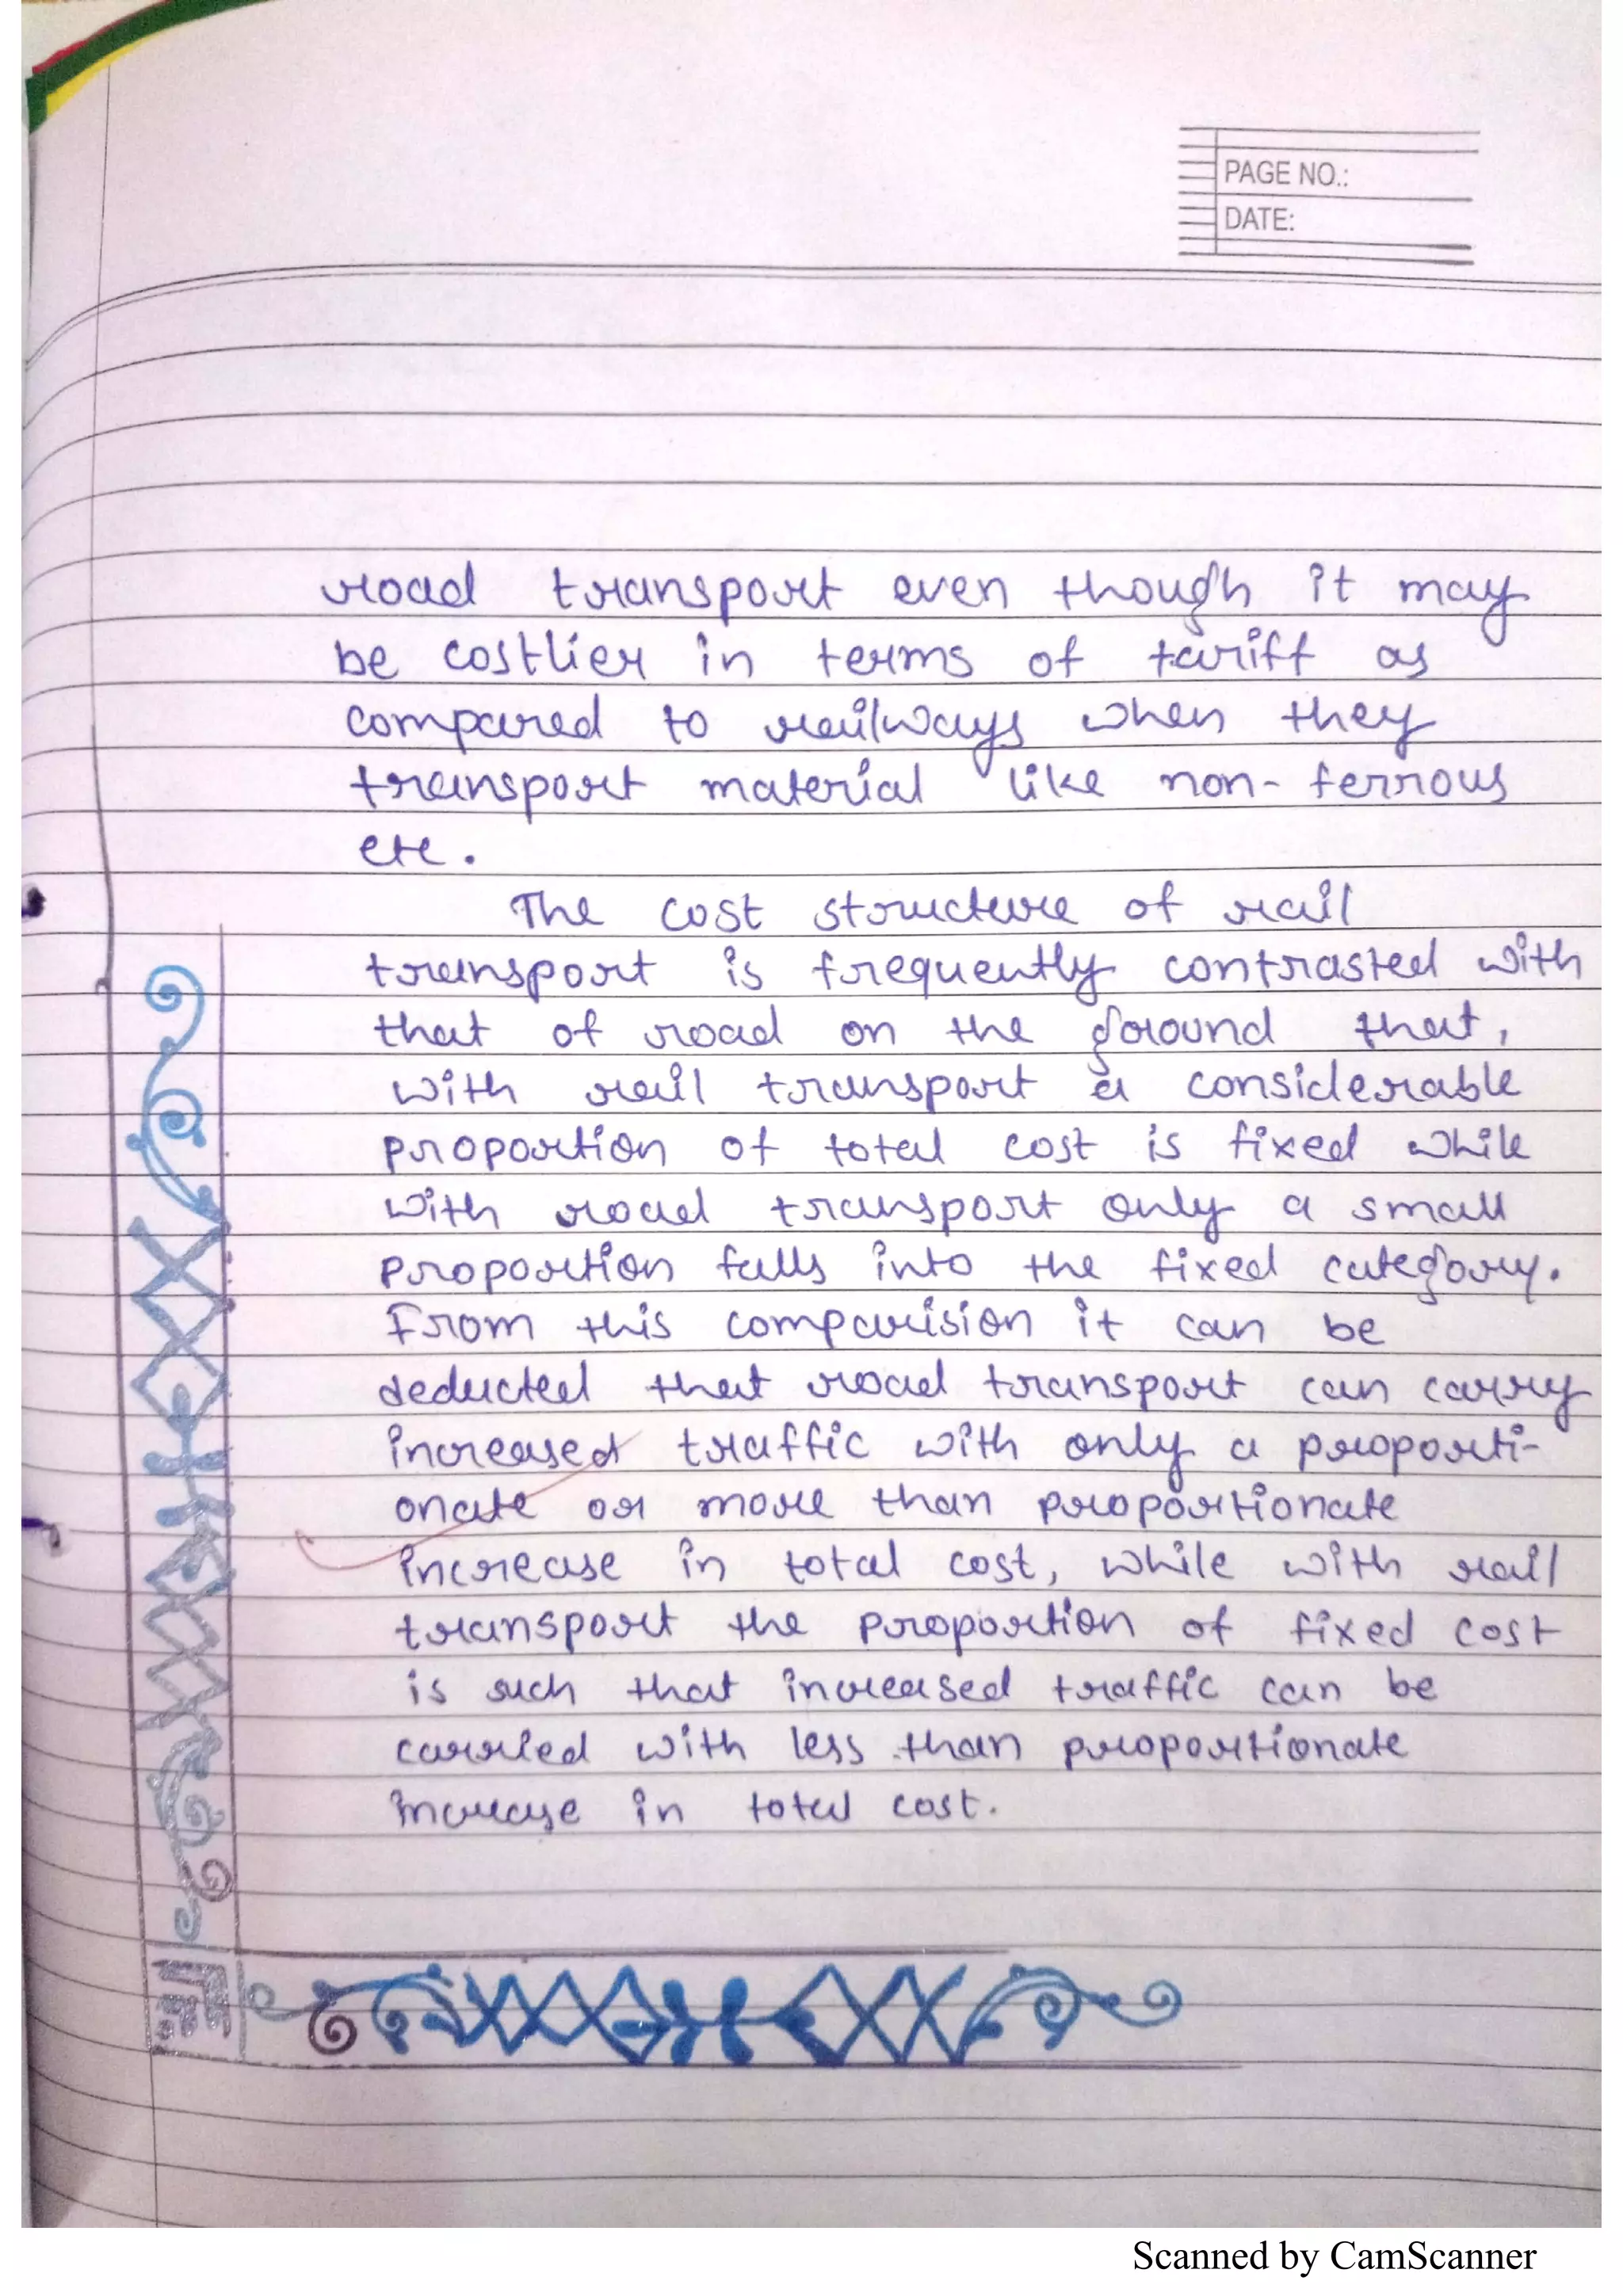 PAGE NO.:
DATE:
road transport even though it may
be costlier in terms of tariff as
compared to railways when they
transport material like non-ferrous
etc.
The cost structure of rail
transport is frequently contrasted with
that of road on the ground that,
with rail transport a considerable
proportion of total cost is fixed while
with road transport only a small
proportion falls into the fixed category.
From this comparision it can be
deducted that road transport can carry
increased traffic with only a proporti-
onate or more than proportionate
increase in total cost, while with rail
transport the proportion of fixed cost
is such that increased traffic can be
carried with less than proportionate
increase in total cost.
Scanned by CamScanner